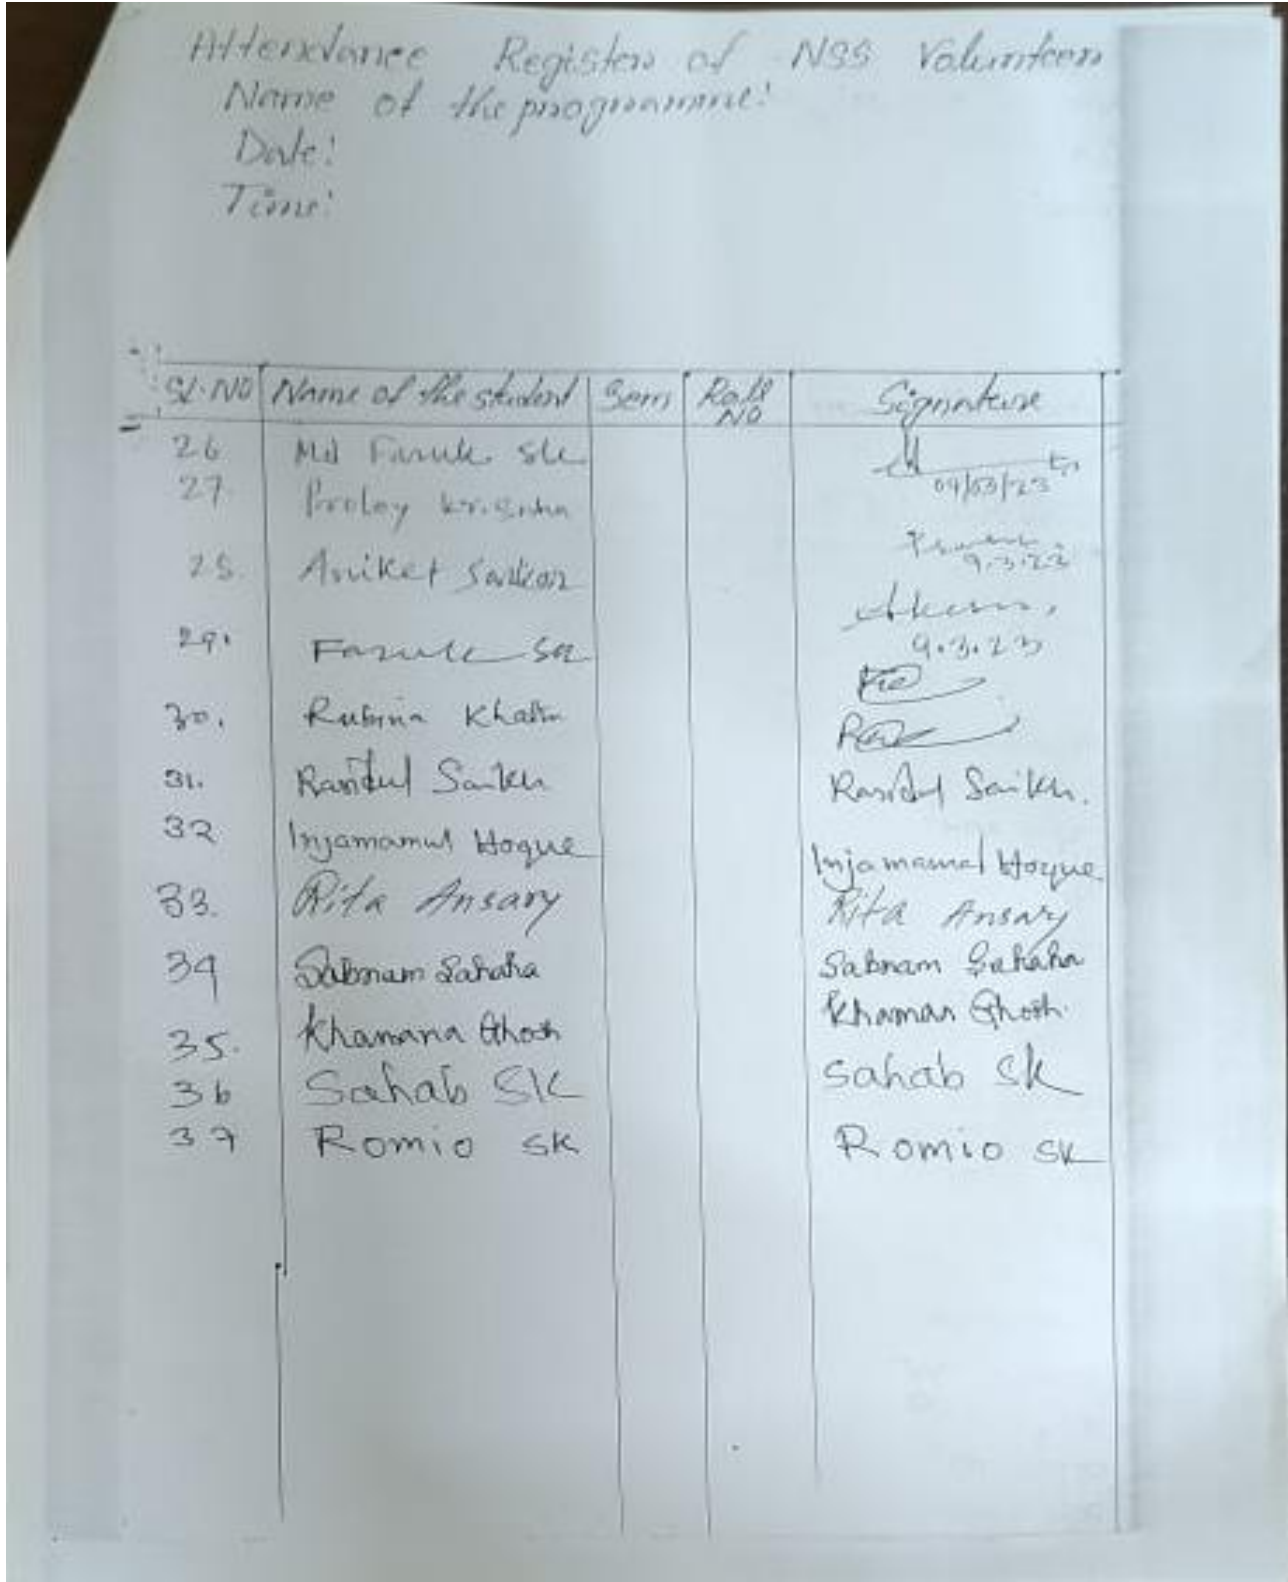 Attendance Register of NSS Volunteers
Name of the programme:
Date:
Time:
Sl. NO Name of the student Sem Roll NO Signature
26 Md Faruk Sk 09/03/23
27. Proloy Krishna 9.3.23
28. Aniket Sarkar 9.3.23
29. Faruk
30. Rubina Khatun
31. Rasidul Saikh Rasidul Saikh.
32 Injamamul Hoque Injamamul Hoque
33. Rita Ansary Rita Ansary
34 Sabnam Sahaha Sabnam Sahaha
35. Khamana Ghosh Khamar Ghosh.
36 Sahab SK Sahab SK
37 Romio SK Romio SK